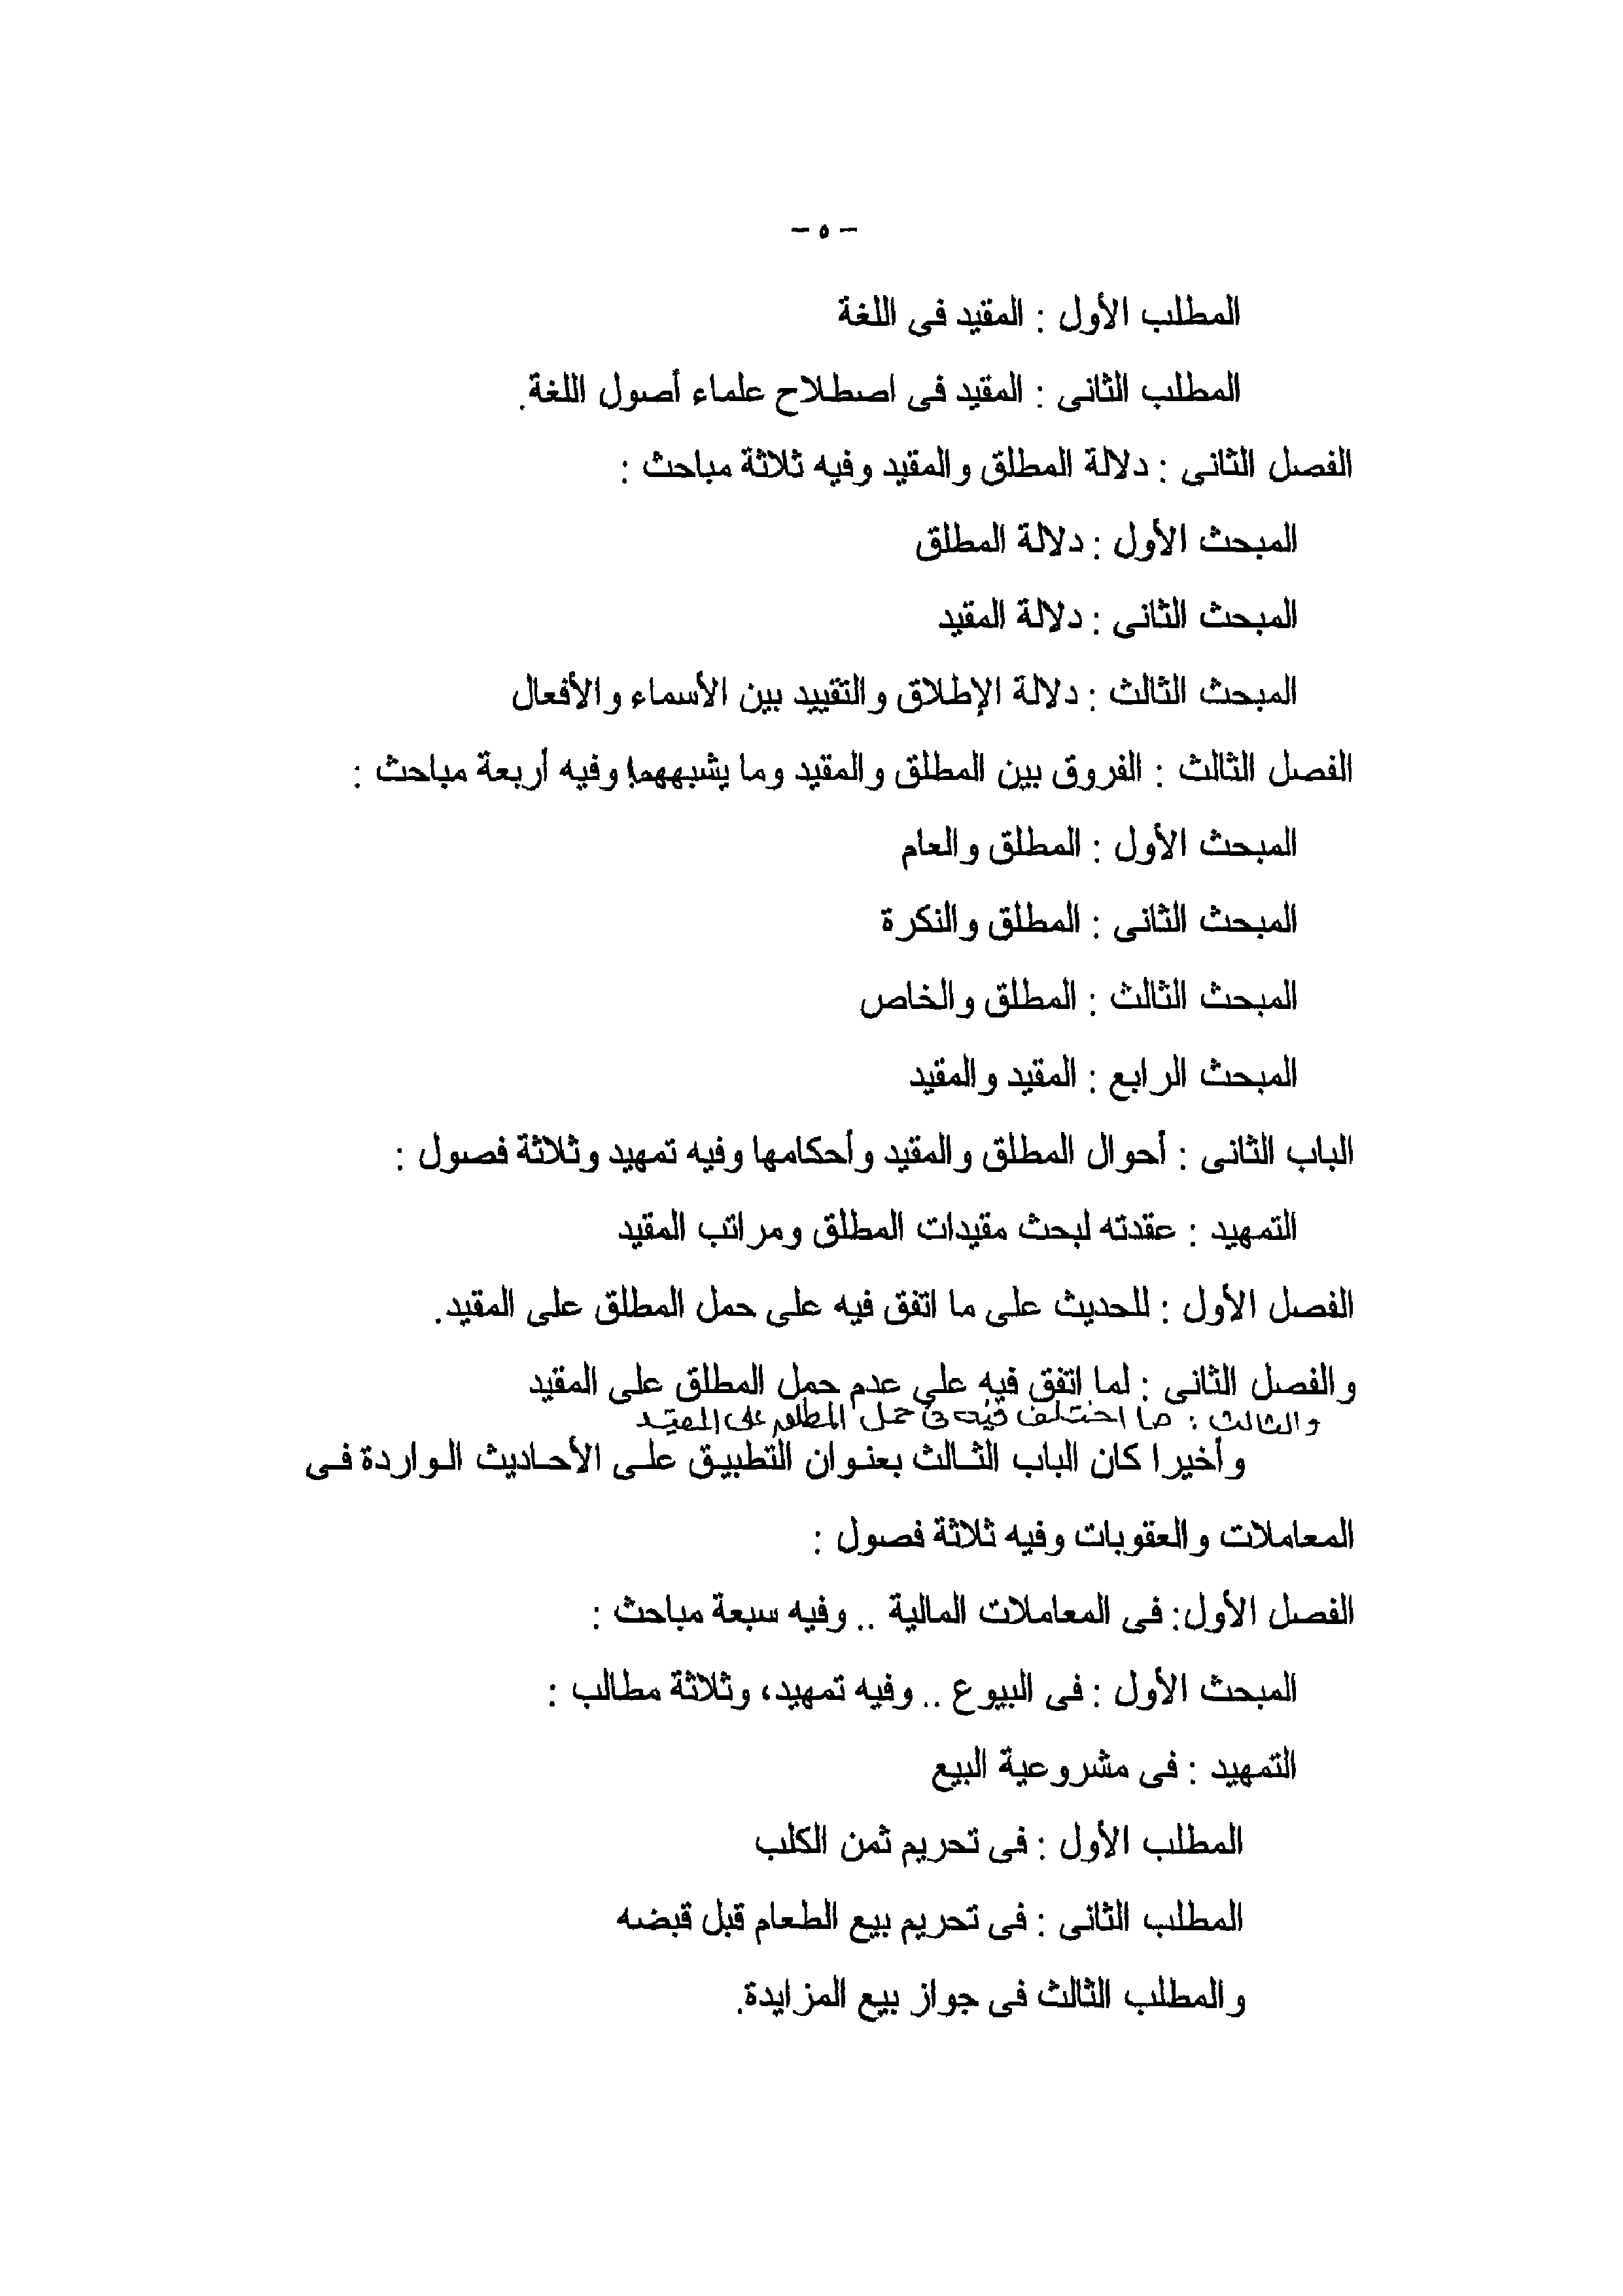 - ٥ -
المطلب الأول : المقيد فى اللغة
المطلب الثانى : المقيد فى اصطلاح علماء أصول اللغة.
الفصل الثانى : دلالة المطلق والمقيد وفيه ثلاثة مباحث :
المبحث الأول : دلالة المطلق
المبحث الثانى : دلالة المقيد
المبحث الثالث : دلالة الإطلاق والتقييد بين الأسماء والأفعال
الفصل الثالث : الفروق بين المطلق والمقيد وما يشبههما وفيه أربعة مباحث :
المبحث الأول : المطلق والعام
المبحث الثانى : المطلق والنكرة
المبحث الثالث : المطلق والخاص
المبحث الرابع : المقيد والمقيد
الباب الثانى : أحوال المطلق والمقيد وأحكامها وفيه تمهيد وثلاثة فصول :
التمهيد : عقدته لبحث مقيدات المطلق ومراتب المقيد
الفصل الأول : للحديث على ما اتفق فيه على حمل المطلق على المقيد.
والفصل الثانى : لما اتفق فيه على عدم حمل المطلق على المقيد
والثالث : ما اختلف فيه فى حمل المطلق على المقيد
وأخيرا كان الباب الثالث بعنوان التطبيق على الأحاديث الواردة فى
المعاملات والعقوبات وفيه ثلاثة فصول :
الفصل الأول: فى المعاملات المالية .. وفيه سبعة مباحث :
المبحث الأول : فى البيوع .. وفيه تمهيد، وثلاثة مطالب :
التمهيد : فى مشروعية البيع
المطلب الأول : فى تحريم ثمن الكلب
المطلب الثانى : فى تحريم بيع الطعام قبل قبضه
والمطلب الثالث فى جواز بيع المزايدة.